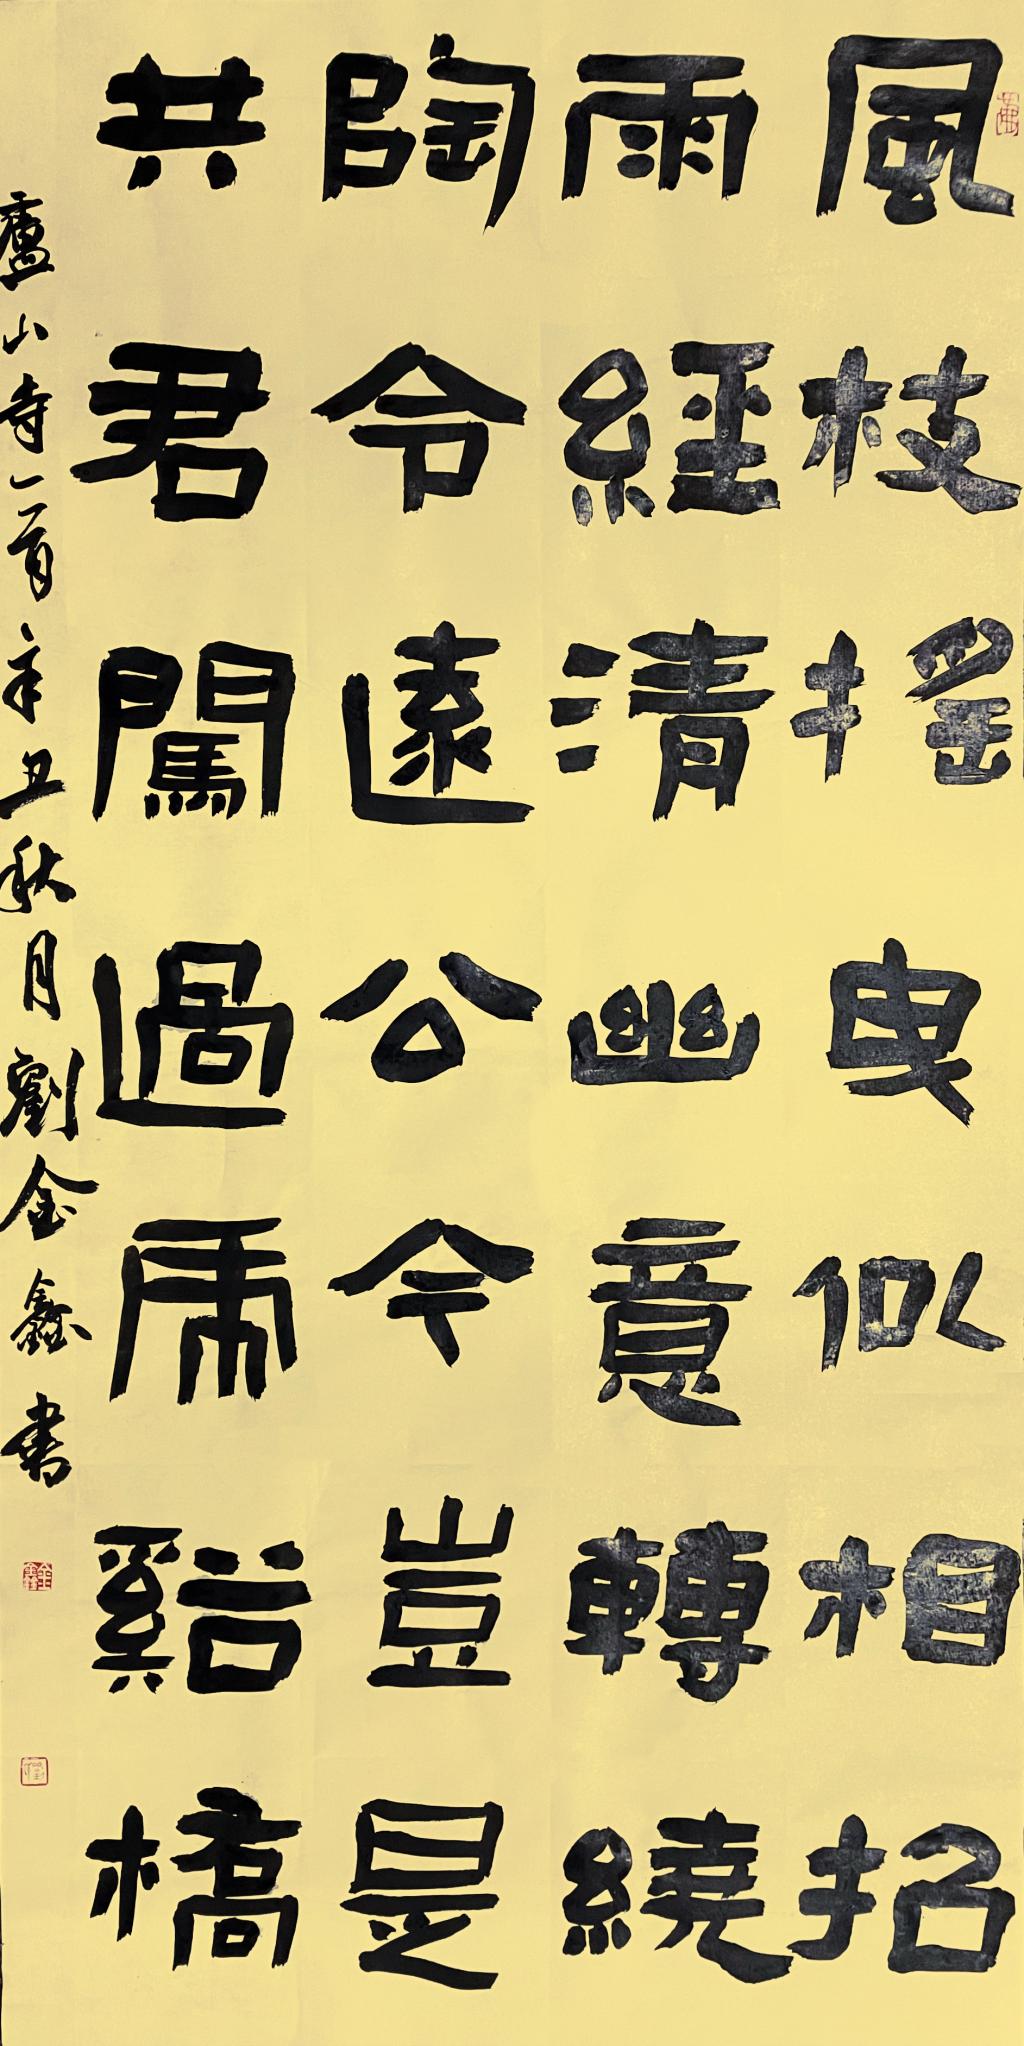 風枝搖曳似相招
雨經清幽意轉繞
陶令遠公今豈是
共君闖過虎谿橋
廬山寺一首辛丑秋月劉金鑫書